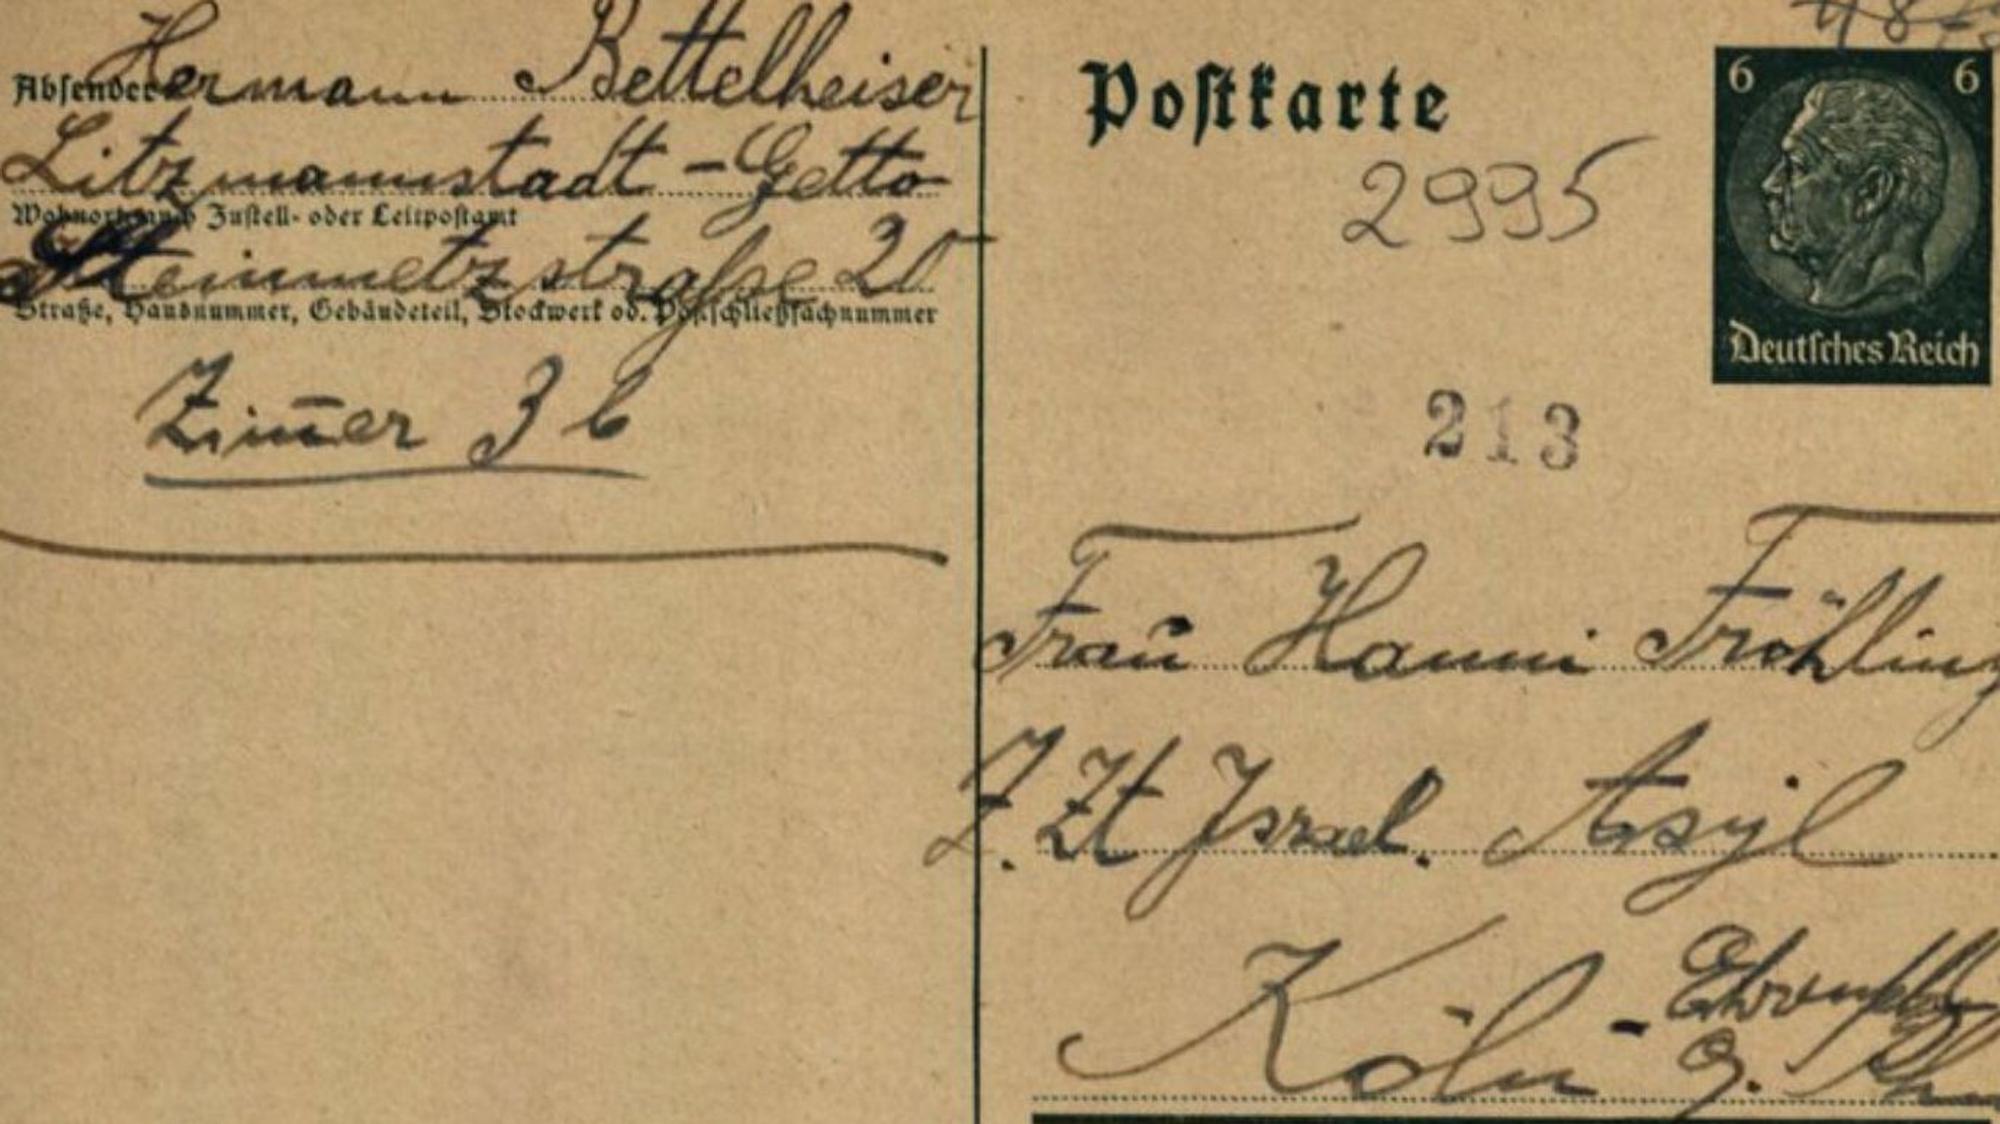 Hermann Bettelheiser
Absender:
Litzmannstadt - Getto
Wohnort, auch Zustell- oder Leitpostamt
Steinmetzstraße 20
Straße, Hausnummer, Gebäudeteil, Stockwerk od. Postschließfachnummer
Zim̄er 3 b
Postkarte
6 6
2995
Deutsches Reich
213
Frau Hanni Fröhling
Z. Zt Israel. Asyl
Köln -